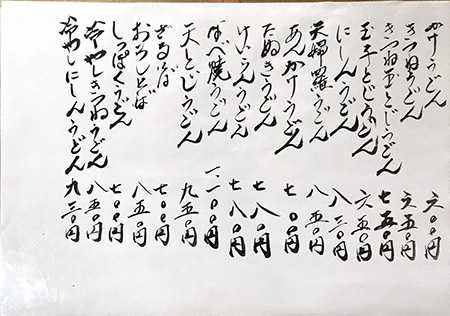 かけうどん 六〇〇円
きつねうどん 六五〇円
きつね玉とじうどん 七五〇円
玉子とじうどん 六五〇円
にしんうどん 八三〇円
天婦羅うどん 八五〇円
あんかけうどん 七〇〇円
たぬきうどん 七八〇円
けいらんうどん 七八〇円
なべ焼うどん 一、一〇〇円
天とじうどん 九五〇円
ざるそば
おろしそば 八五〇円
しっぽくうどん 七〇〇円
冷やしきつねうどん 八五〇円
冷やしにしんうどん 九三〇円